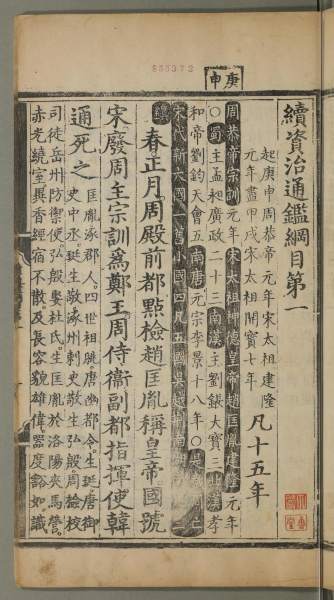 853372
庚申
續資治通鑑綱目第一
起庚申周恭帝元年宋太祖建隆
元年盡甲戌宋太祖開寶七年
凡十五年
周恭帝宗訓元年宋太祖神德皇帝趙匡胤建隆元年
○蜀主孟昶廣政二十三南漢主劉鋹大寶三北漢孝
和帝劉鈞天會五南唐元宗李景十八年○是歲周亡
宋代新大國一舊小國四凡五國吳越
春正月周殿前都點檢趙匡胤稱皇帝國號
宋廢周主宗訓爲鄭王周侍衛副都指揮使韓
通死之
匡胤涿郡人四世祖朓唐幽都令生珽唐御
史中丞珽生敬涿州刺史敬生弘殷周檢校
司徒岳州防禦使弘殷娶杜氏生匡胤於洛陽夾馬營
赤光繞室異香經宿不散及長容貌雄偉器度豁如識